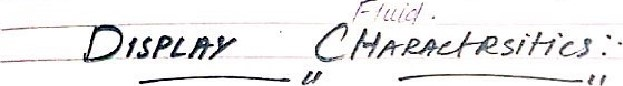 Fluid.
DISPLAY CHARACtRSitics:-